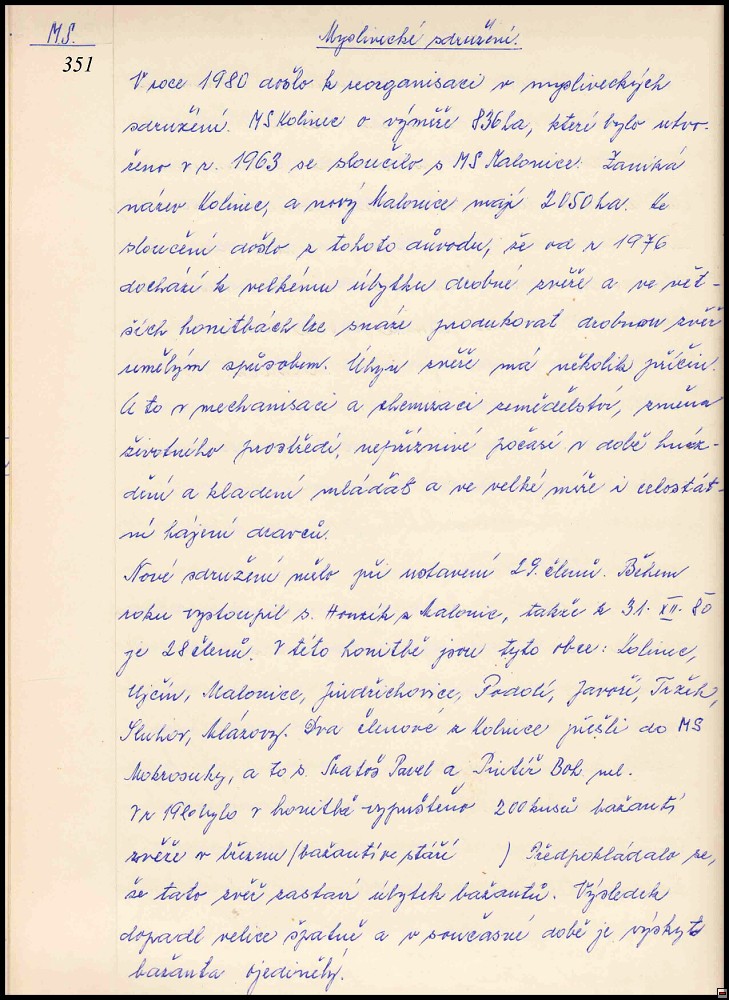 MS.
351
Myslivecké sdružení.
V roce 1980 došlo k reorganisaci v mysliveckých
sdružení. MS Kolinec o výměře 836 ha, které bylo utvo-
řeno v r. 1963 se sloučilo s MS Malonice. Zaniká
název Kolinec, a nový Malonice mají 2050 ha. Ke
sloučení došlo z tohoto důvodu, že od r 1976
dochází k velkému úbytku drobné zvěře a ve vět-
ších honitbách lze snáze produkovat drobnou zvěř
umělým způsobem. Úhyn zvěře má několik příčin.
A to v mechanisaci a chemizaci zemědělství, změna
životného prostředí, nepříznivé počasí v době hníz-
dění a kladení mláďat a ve velké míře i celostát-
ní hájení dravců.
Nové sdružení mělo při ustavení 29. členů. Během
roku vystoupil s. Honzík z Malonic, takže k 31. XII. 80
je 28 členů. V této honitbě jsou tyto obce: Kolinec,
Ujčín, Malonice, Jindřichovice, Podolí, Javoří, Tržek,
Sluhov, Mlázovy. Dva členové z Kolince přešli do MS
Mokrosuky, a to s. Svatoš Pavel a Pintíř Boh. ml.
V r 1980 bylo v honitbě vypuštěno 200 kusů bažantí
zvěře v březnu (bažanti ve stáří ) Předpokládalo se,
že tato zvěř zastaví úbytek bažantů. Výsledek
dopadl velice špatně a v současné době je výskyt
bažanta ojedinělý.